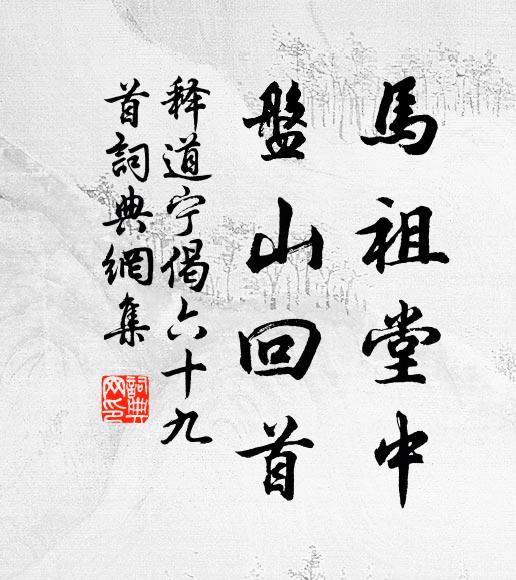 馬祖堂中
盤山回首
释道宁偈六十九
首詞典網集
詞典
网印